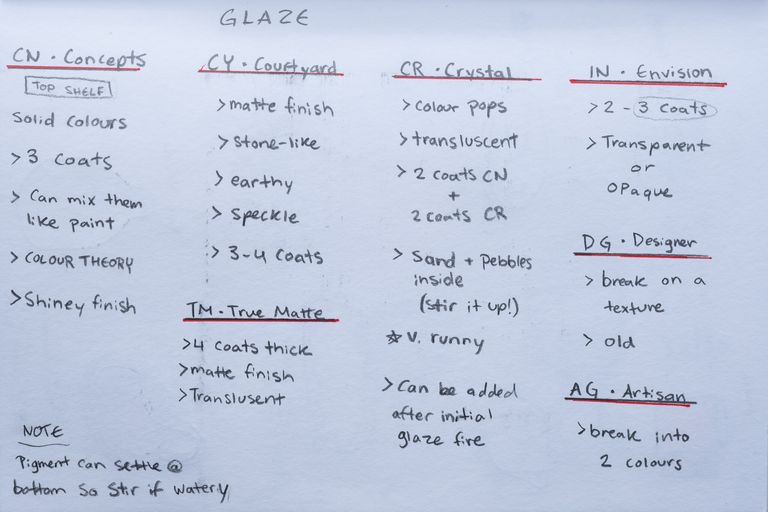 GLAZE
CN · Concepts
TOP SHELF
Solid colours
> 3 coats
> Can mix them
like paint
> COLOUR THEORY
> Shiney finish
NOTE
Pigment can settle @
bottom so stir if watery
CY · Courtyard
> matte finish
> Stone-like
> earthy
> Speckle
> 3-4 coats
TM · True Matte
> 4 coats thick
> matte finish
> Translusent
CR · Crystal
> colour pops
> transluscent
> 2 coats CN
+
2 coats CR
> Sand + Pebbles
inside
(Stir it up!)
☆ V. runny
> Can be added
after initial
glaze fire
IN · Envision
> 2 - 3 coats
> Transparent
or
Opaque
DG · Designer
> break on a
texture
> old
AG · Artisan
> break into
2 colours